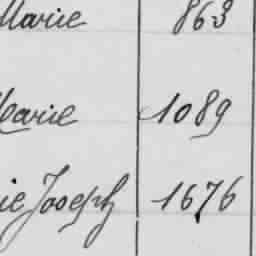 Marie 863
Marie 1089
ie Joseph 1676